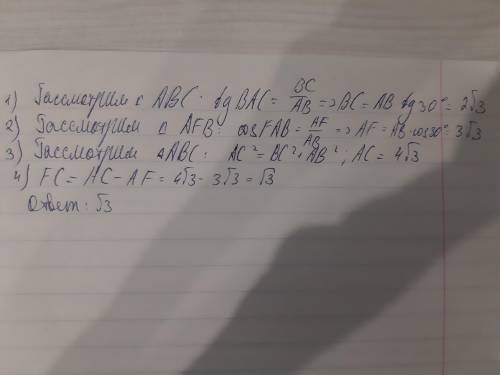 1) Рассмотрим △ ABC: tg BAC = BC/AB => BC = AB tg 30° = 2√3
2) Рассмотрим △ AFB: cos FAB = AF/AB => AF = AB · cos 30° = 3√3
3) Рассмотрим △ABC: AC² = BC² + AB²; AC = 4√3
4) FC = AC - AF = 4√3 - 3√3 = √3
Ответ: √3